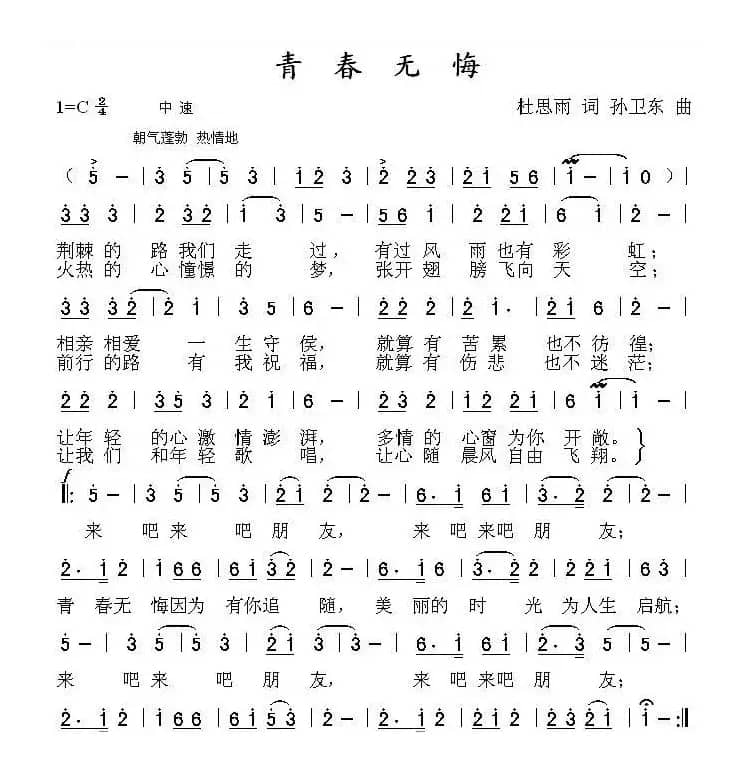 青 春 无 悔
1=C 2/4 中 速 杜思雨 词 孙卫东 曲
朝气蓬勃 热情地
（ 5 － | 3 5 | 5 3 | 1 2 3 | 2 2 3 | 2 1 5 6 | 1 － | 1 0 ）|
3 3 3 | 2 3 2 | 1 3 | 5 － | 5 6 1 | 2 2 1 | 6 1 | 2 － |
荆棘 的 路 我们 走 过， 有过 风 雨 也有 彩 虹；
火热 的 心 憧憬 的 梦， 张开 翅 膀 飞向 天 空；
3 3 3 2 | 2 1 | 3 5 | 6 － | 2 2 2 | 2 1· | 2 1 6 | 2 － |
相亲 相爱 一 生 守 侯， 就算 有 苦 累 也不 彷 徨；
前行 的路 有 我 祝 福， 就算 有 伤 悲 也不 迷 茫；
2 2 2 | 3 5 3 | 2 1 | 6 － | 2 3 2 | 1 2 2 1 | 6 1 | 1 － |
让年 轻 的心 激 情 澎 湃， 多情 的 心窗 为你 开 敞。
让我 们 和年 轻 歌 唱， 让心 随 晨风 自由 飞 翔。
f
‖: 5 － | 3 5 | 5 3 | 2 1 2 | 2 － | 6· 1 | 6 1 | 3· 2 | 2 － |
来 吧 来 吧 朋 友， 来 吧 来吧 朋 友；
2· 1 2 | 1 6 6 | 6 1 3 2 | 2 － | 2· 1 | 6 1 | 2· 3 5 | 6 － |
青 春无 悔因为 有你追 随， 美 丽的 时 光 为人生 启航；
5 － | 3 5 | 5 3 | 2 1 | 3 | 3 － | 6· 1 | 6 1 | 3· 5 | 5 － |
来 吧 来 吧 朋 友， 来 吧 来吧 朋 友；
2· 1 2 | 1 6 6 | 6 1 5 3 | 3 － | 2· 1 | 2 2 | 3 2 2 1 | 1 － :‖